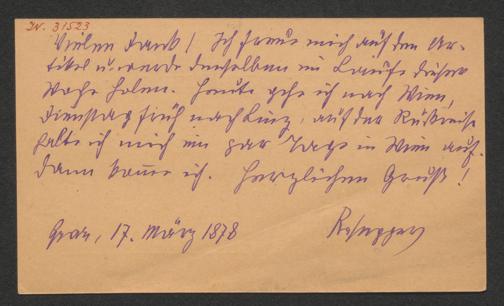 IN. 31523
Vielen Dank! Ich freue mich auf den Ar-
tikel u. werde denselben im Laufe dieser
Woche holen. Heute gehe ich nach Wien,
Dienstag früh nach Linz, auf der Rückreise
halte ich mich ein par Tage in Wien auf.
Dann komme ich. Herzlichen Gruß!
Graz, 17. März 1878
Rosegger